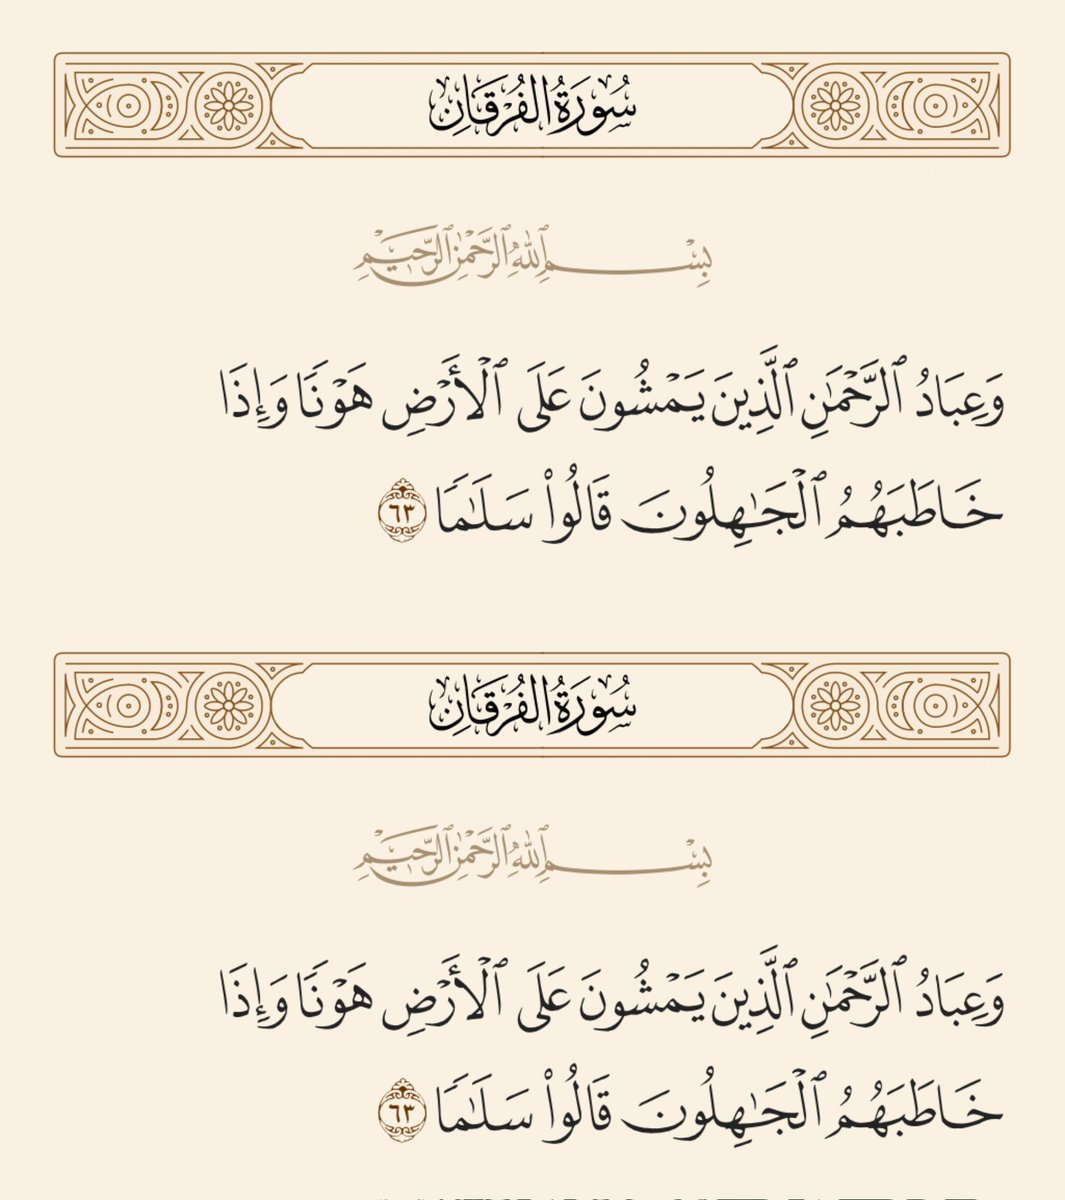 سُورَةُ الفُرْقَانِ
بِسْمِ ٱللَّهِ ٱلرَّحْمَٰنِ ٱلرَّحِيمِ
وَعِبَادُ ٱلرَّحْمَٰنِ ٱلَّذِينَ يَمْشُونَ عَلَى ٱلْأَرْضِ هَوْنًا وَإِذَا
خَاطَبَهُمُ ٱلْجَٰهِلُونَ قَالُوا۟ سَلَٰمًا ٦٣
سُورَةُ الفُرْقَانِ
بِسْمِ ٱللَّهِ ٱلرَّحْمَٰنِ ٱلرَّحِيمِ
وَعِبَادُ ٱلرَّحْمَٰنِ ٱلَّذِينَ يَمْشُونَ عَلَى ٱلْأَرْضِ هَوْنًا وَإِذَا
خَاطَبَهُمُ ٱلْجَٰهِلُونَ قَالُوا۟ سَلَٰمًا ٦٣